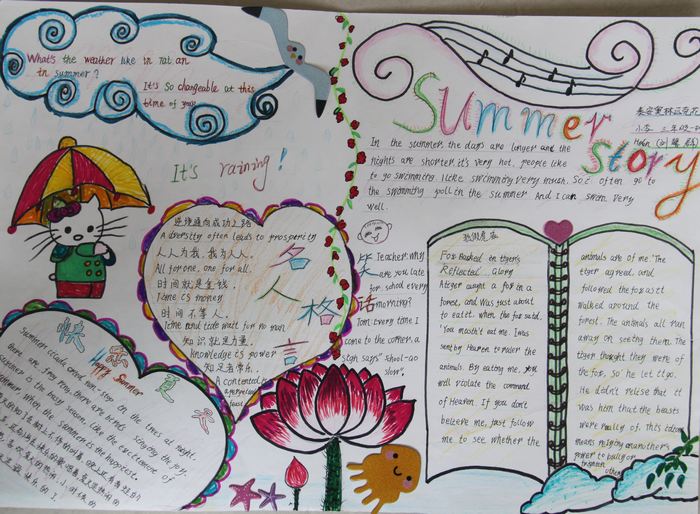 What's the weather like in
in summer?
It's so changeable at this
time of year
It's raining!
Summer Story
小学 二年
In the summer, the days are longer and the
nights are shorter. it's very hot. people like
to go swimming. I like swimming very much. So I often go to
the swimming pool in the summer And I can swim very
well.
逆境通向成功之路
A diversity often leads to prosperity
人人为我,我为人人.
All for one, one for all.
时间就是金钱.
Time is money
时间不等人.
Time and tide wait for no man
知识就是力量.
knowledge is power
知足者常乐.
A contented
feast
名人格言
笑话
Teacher: Why
are you late
for school every
morning?
Tom: Every time I
come to the corner, a
sign says "School-Go
slow".
狐假虎威
Fox Basked in tiger's
Reflected Glory
A tiger caught a fox in a
forest, and was just about
to eat it. when the fox said.
"You mustn't eat me. I was
sent by Heaven to ruler the
animals. By eating me, you
will violate the command
of Heaven. If you don't
believe me, just follow
me to see whether the
animals are of me." The
tiger agreed, and
followed the fox as it
walked around the
forest. The animals all ran
away on seeing them. The
tiger thought they were of
the fox, so he let it go.
He didn't relise that it
was him that the beasts
were really of. this idiom
means relying on another's
power to bully or
others
快乐夏天
Happy Summer
Summer cicada cried non stop on the trees at night.
there are frog now, there are birds singing the joy.
summer is the busy season, like the excitement of
summer, when the summer is the happiest.